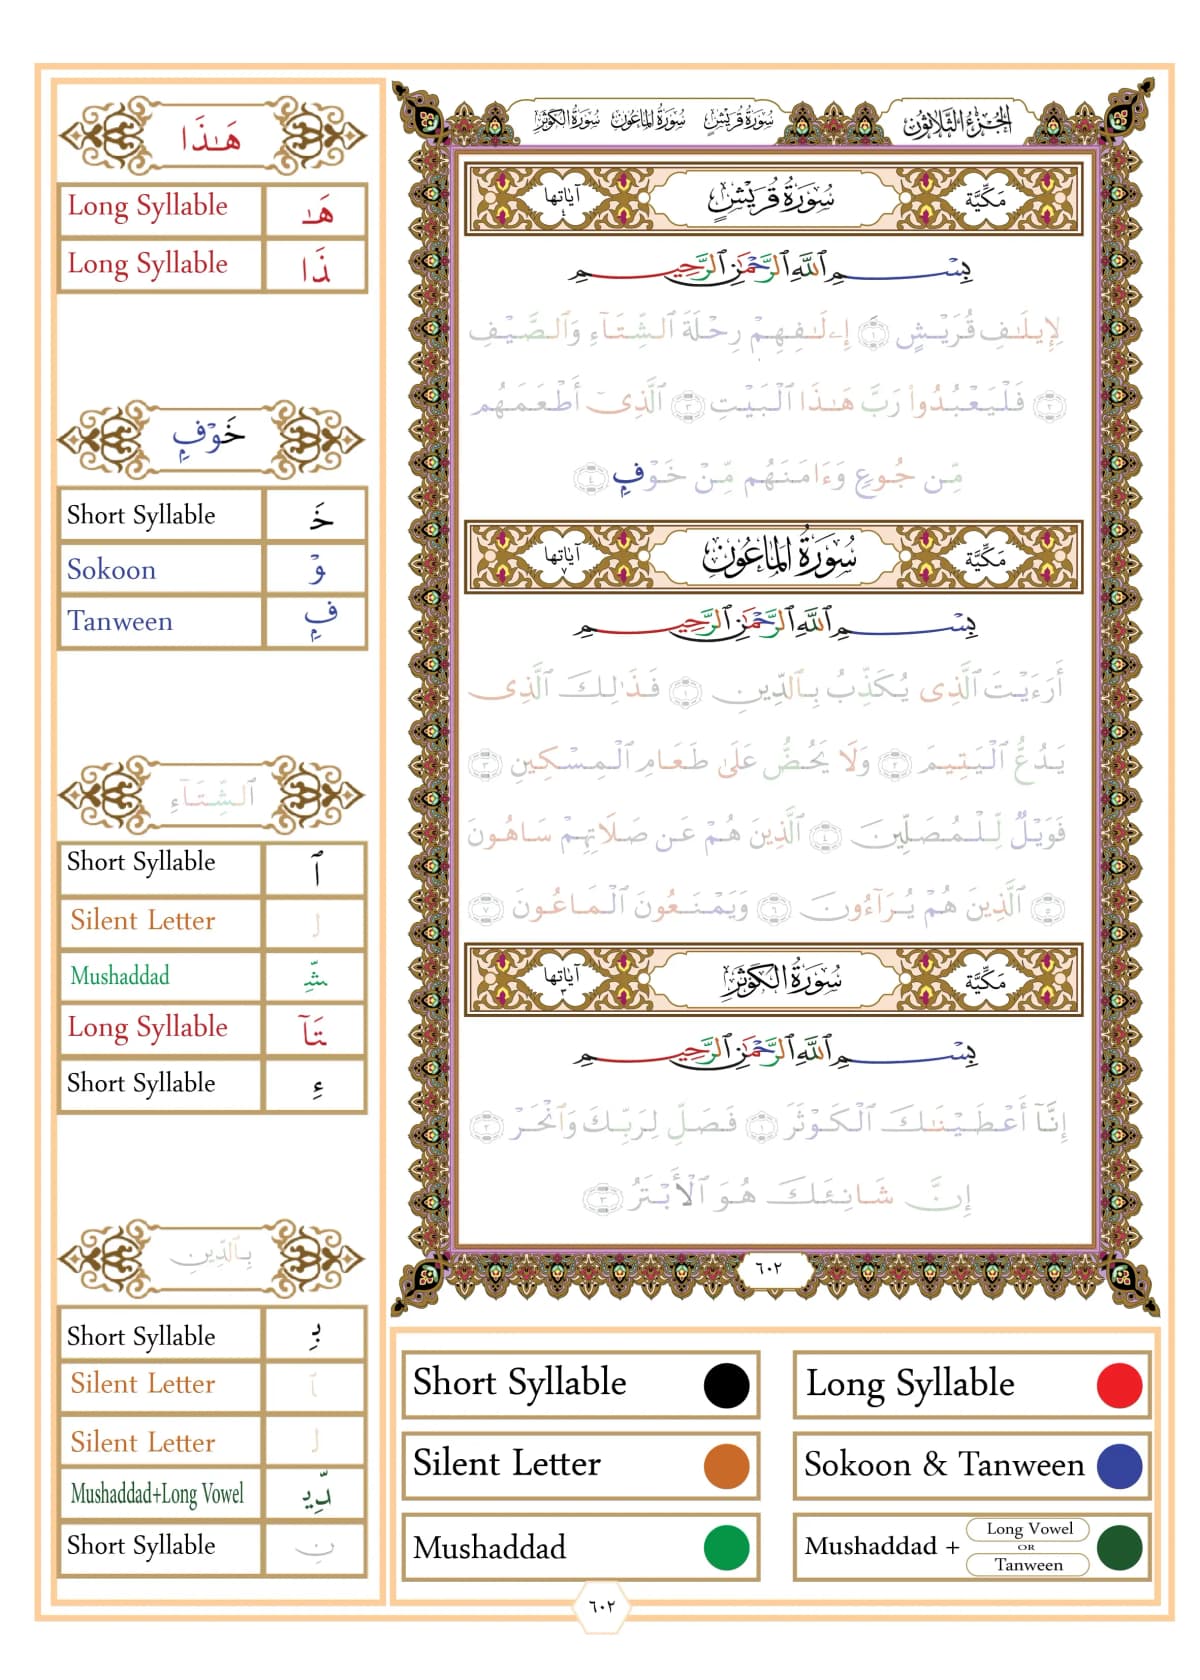 الجزء الثلاثون
سورة قريش سورة الماعون سورة الكوثر
مَكِّيَّة سُورَةُ قُرَيْشٍ آياتها ٤
بِسْمِ ٱللَّهِ ٱلرَّحْمَٰنِ ٱلرَّحِيمِ
لِإِيلَٰفِ قُرَيْشٍ ١ إِۦلَٰفِهِمْ رِحْلَةَ ٱلشِّتَآءِ وَٱلصَّيْفِ
٢ فَلْيَعْبُدُوا۟ رَبَّ هَٰذَا ٱلْبَيْتِ ٣ ٱلَّذِىٓ أَطْعَمَهُم
مِّن جُوعٍ وَءَامَنَهُم مِّنْ خَوْفٍۭ ٤
مَكِّيَّة سُورَةُ الْمَاعُون آياتها ٧
بِسْمِ ٱللَّهِ ٱلرَّحْمَٰنِ ٱلرَّحِيمِ
أَرَءَيْتَ ٱلَّذِى يُكَذِّبُ بِٱلدِّينِ ١ فَذَٰلِكَ ٱلَّذِى
يَدُعُّ ٱلْيَتِيمَ ٢ وَلَا يَحُضُّ عَلَىٰ طَعَامِ ٱلْمِسْكِينِ ٣
فَوَيْلٌ لِّلْمُصَلِّينَ ٤ ٱلَّذِينَ هُمْ عَن صَلَاتِهِمْ سَاهُونَ
٥ ٱلَّذِينَ هُمْ يُرَآءُونَ ٦ وَيَمْنَعُونَ ٱلْمَاعُونَ ٧
مَكِّيَّة سُورَةُ الْكَوْثَر آياتها ٣
بِسْمِ ٱللَّهِ ٱلرَّحْمَٰنِ ٱلرَّحِيمِ
إِنَّآ أَعْطَيْنَٰكَ ٱلْكَوْثَرَ ١ فَصَلِّ لِرَبِّكَ وَٱنْحَرْ ٢
إِنَّ شَانِئَكَ هُوَ ٱلْأَبْتَرُ ٣
٦٠٢
هَٰذَا
Long Syllable هَٰ
Long Syllable ذَا
خَوْفٍۭ
Short Syllable خَ
Sokoon وْ
Tanween فٍۭ
ٱلشِّتَآءِ
Short Syllable ٱ
Silent Letter ل
Mushaddad شِّ
Long Syllable تَآ
Short Syllable ءِ
بِٱلدِّينِ
Short Syllable بِ
Silent Letter ٱ
Silent Letter ل
Mushaddad+Long Vowel دِّي
Short Syllable نِ
Short Syllable
Long Syllable
Silent Letter
Sokoon & Tanween
Mushaddad
Mushaddad + Long Vowel OR Tanween
٦٠٢